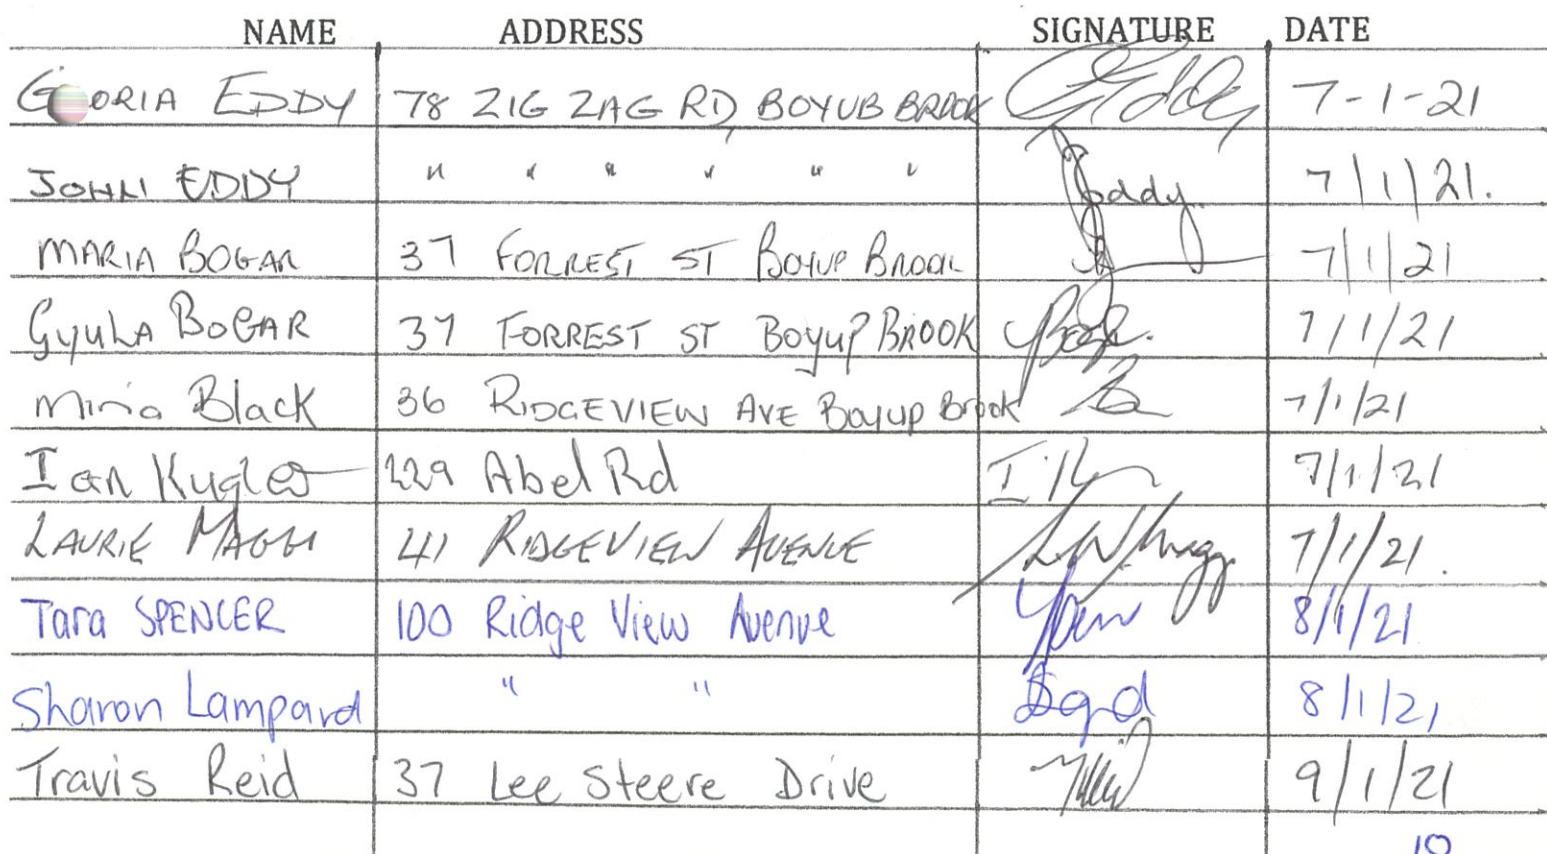 NAME ADDRESS SIGNATURE DATE
GLORIA EDDY 78 ZIG ZAG RD, BOYUB BROOK GEddy 7-1-21
JOHN EDDY " " " " " " Jeddy. 7/1/21.
MARIA BOGAR 37 FORREST ST BOYUP BROOK 7/1/21
GyuLA BOGAR 37 FORREST ST Boyup BROOK 7/1/21
Miria Black 36 RIDGEVIEW AVE Boyup Brook 7/1/21
Ian Kugler 229 Abel Rd 7/1/21
LAURIE MAGGI 41 RIDGEVIEW AVENUE 7/1/21.
Tara SPENCER 100 Ridge View Avenue 8/1/21
Sharon Lampard " " 8/1/21
Travis Reid 37 Lee Steere Drive 9/1/21
10